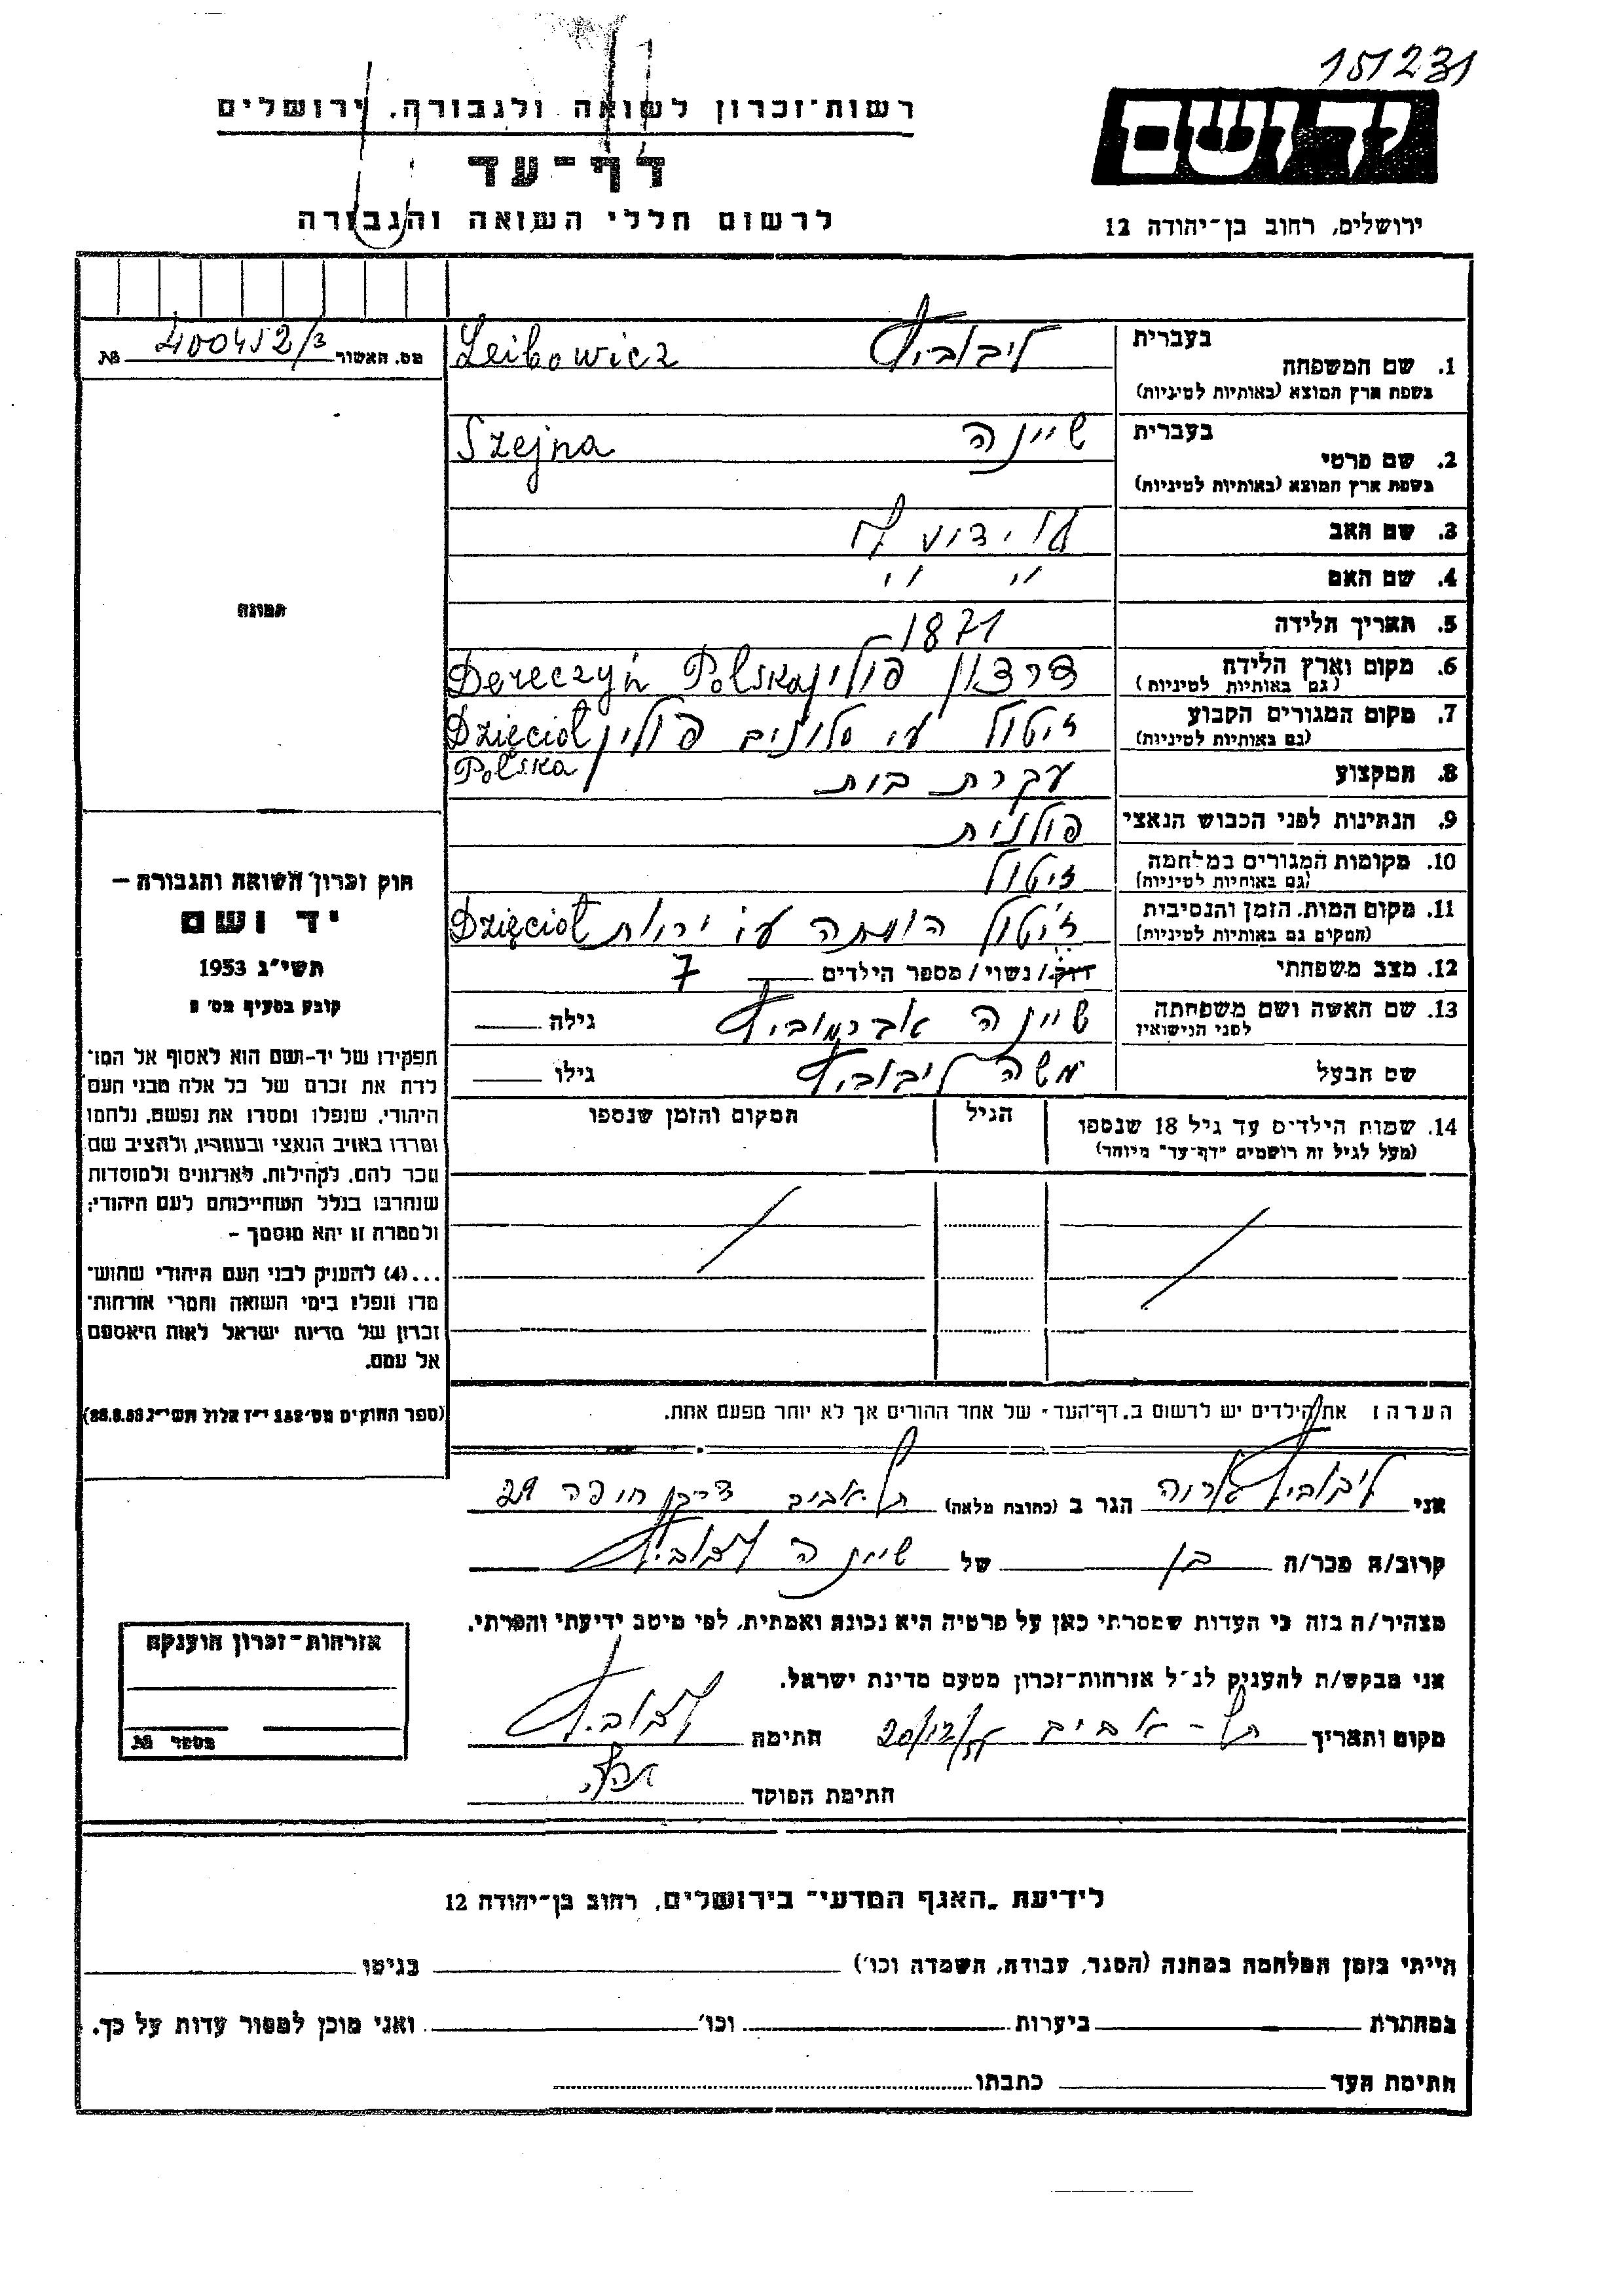 151231
רשות־זכרון לשואה ולגבורה, ירושלים
יד ושם
דף־עד
לרשום חללי השואה והגבורה
ירושלים, רחוב בן־יהודה 12
מס. האשור 400452/3 №
בעברית ליבוביץ Leibowicz
1. שם המשפחה
בשפת ארץ המוצא (באותיות לטיניות)
בעברית שיינה Szejna
2. שם פרטי
בשפת ארץ המוצא (באותיות לטיניות)
3. שם האב לא ידוע לי
4. שם האם " "
5. תאריך הלידה 1871
6. מקום וארץ הלידה פולין Dereczyń Polska
(גם באותיות לטיניות)
7. מקום המגורים הקבוע זיטול ע״י סלונים פולין Dzięcioł
(גם באותיות לטיניות) Polska
8. המקצוע עקרת בית
9. הנתינות לפני הכבוש הנאצי פולנית
10. מקומות המגורים במלחמה זיטול
(גם באותיות לטיניות)
11. מקום המות, הזמן והנסיבות זיטול הומתה ע״י יריות Dzięcioł
(המקום גם באותיות לטיניות)
12. מצב משפחתי רווק/ נשוי/ מספר הילדים 7
13. שם האשה ושם משפחתה שיינה אברמוביץ גילה
לפני הנישואין
שם הבעל משה ליבוביץ גילו
14. שמות הילדים עד גיל 18 שנספו הגיל המקום והזמן שנספו
(מעל לגיל זה רושמים "דף־עד" מיוחד)
תמונה
חוק זכרון השואה והגבורה –
יד ושם
תשי״ג 1953
קובע בסעיף מס׳ 2
תפקידו של יד־ושם הוא לאסוף אל המו־
לדת את זכרם של כל אלה מבני העם
היהודי, שנפלו ומסרו את נפשם, נלחמו
ומרדו באויב הנאצי ובעוזריו, ולהציב שם
וזכר להם, לקהילות, לארגונים ולמוסדות
שנחרבו בגלל השתייכותם לעם היהודי;
ולמטרה זו יהא מוסמך –
...(4) להעניק לבני העם היהודי שהוש־
מדו ונפלו בימי השואה והמרי אזרחות־
זכרון של מדינת ישראל לאות היאספם
אל עמם.
(ספר החוקים מס׳ 132 י״ז אלול תשי״ג 28.8.53)
הערה: את הילדים יש לרשום ב„דף־העד״ של אחד ההורים אך לא יותר מפעם אחת.
אני ליבוביץ אריה הגר ב (כתובת מלאה) תל אביב דרך חיפה 29
קרוב/ה מכר/ה בן של שיינה ליבוביץ
מצהיר/ה בזה כי העדות שמסרתי כאן על פרטיה היא נכונה ואמתית, לפי מיטב ידיעתי והכרתי.
אני מבקש/ת להעניק לנ״ל אזרחות־זכרון מטעם מדינת ישראל.
מקום ותאריך תל-אביב חתימה ליבוביץ
חתימת הפוקד
אזרחות־זכרון הוענקה
מספר №
לידיעת „האגף המדעי״ בירושלים, רחוב בן־יהודה 12
הייתי בזמן המלחמה במחנה (הסגר, עבודה, השמדה וכו׳) בגיטו
במחתרת ביערות וכו׳ ואני מוכן למסור עדות על כך.
חתימת העד כתבתו